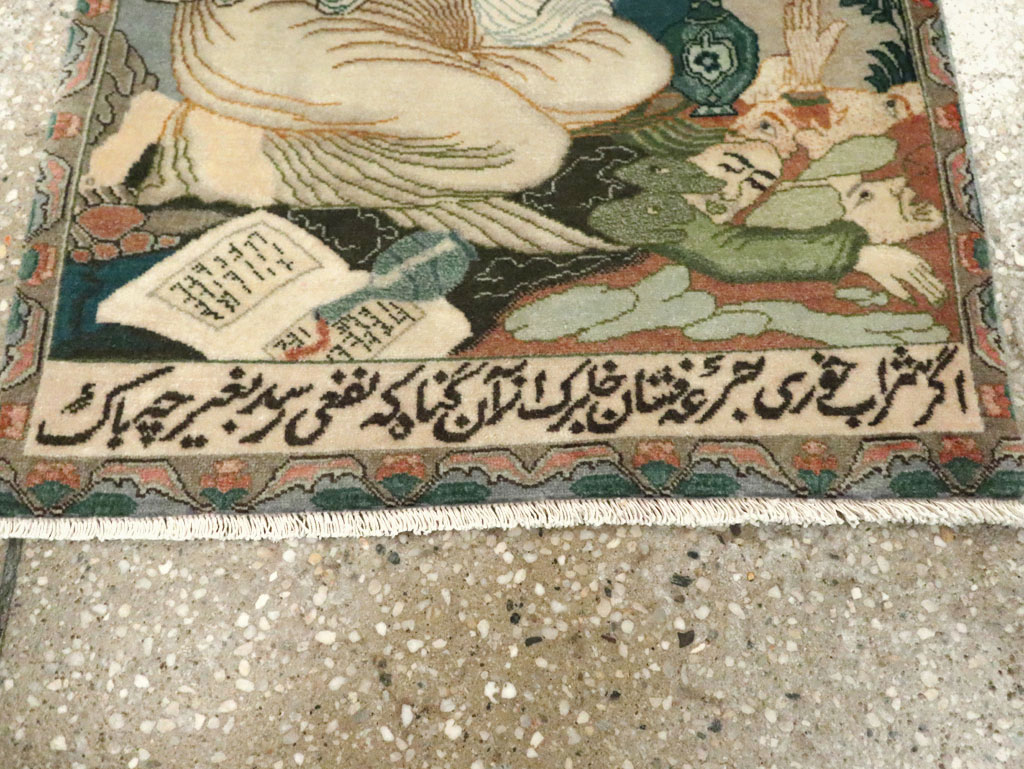 اگر شراب خوری جرعه فشان خابرک از آن گناه که نفعی رسد بغیر چه باک